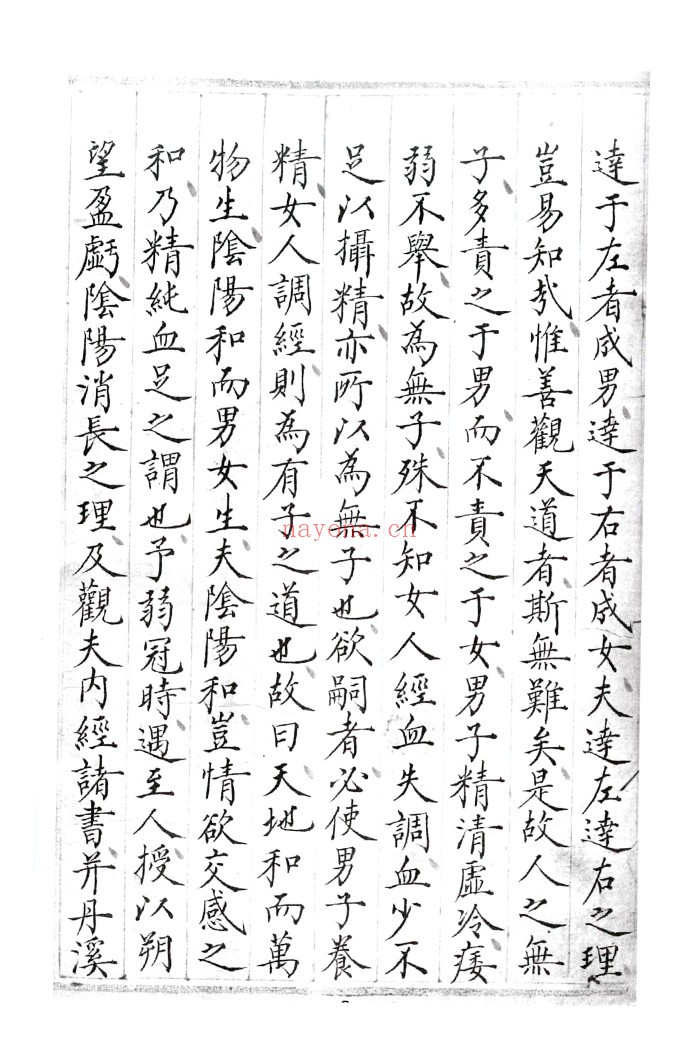 達于左者成男達于右者成女夫達左達右之理
豈易知㢤惟善觀天道者斯無難矣是故人之無
子多責之于男而不責之于女男子精清虛冷痿
弱不舉故為無子殊不知女人經血失調血少不
足以攝精亦所以為無子也欲嗣者必使男子養
精女人調經則為有子之道也故曰天地和而萬
物生陰陽和而男女生夫陰陽和豈情欲交感之
和乃精純血足之謂也予弱冠時遇至人授以朔
望盈虧陰陽消長之理及觀夫内經諸書并丹溪
nayona.cn